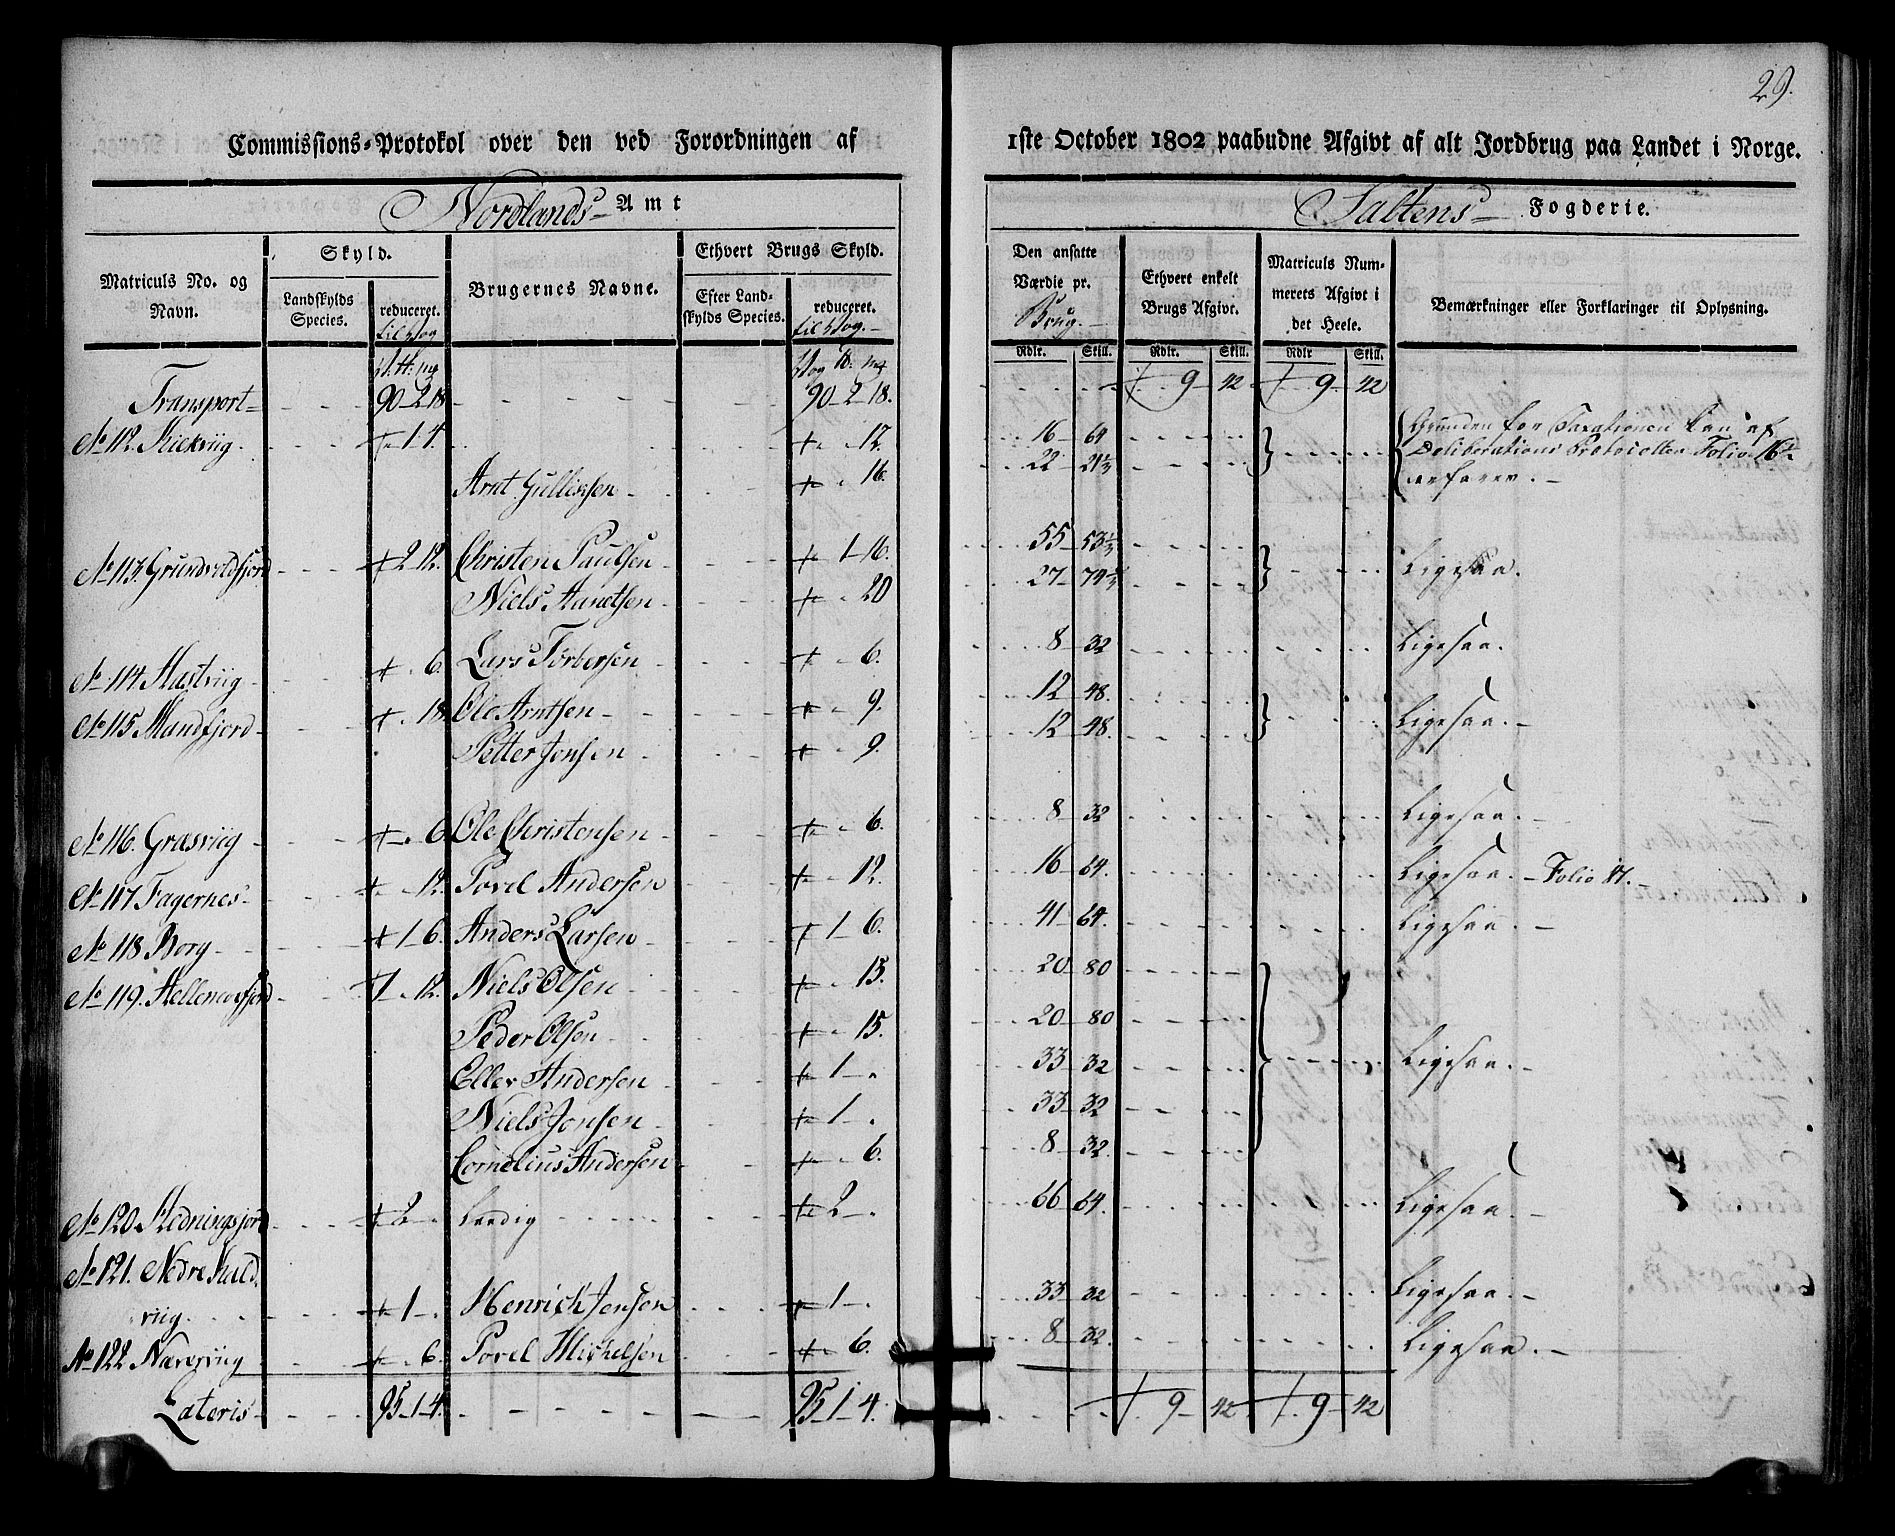 29.
Commissions-Protokol over den ved Forordningen af 1ste October 1802 paabudne Afgivt af alt Jordbrug paa Landet i Norge.
Nordlands Amt Saltens Fogderie.
Matriculs No. og Navn. Skyld. Landskylds Species. reduceret. til Vog Brugernes Navne. Ethvert Brugs Skyld. Efter Landskylds Species. reduceret. til Vog. Den ansatte Værdie pr. Brug. Ethvert enkelt Brugs Afgivt. Matriculs Nummerets Afgivt i det Heele. Bemærkninger eller Forklaringer til Oplysning.
Rdlr. Skill. Rdlr. Skill. Rdlr Skill.
Transport 90-2-18 90-2-18. 9 42 9 42
No 112. 1-4. 12. 16 64 Grunden for Taxationen kan af
Arnt Gullixsen 16. 22 21 1/3 Deliberations Protocollen Folio 16
erfares.
No 113. Grundvildfjord 2 12. Christen Paulsen 1-16. 55 53 1/3 Ligesaa.
Niels 20 27 74 2/3
No 114 6. Lars Torbersen 6. 8 32 Ligesaa.
No 115 Mandfjord 18. Ole Arntsen 9. 12 48. Ligesaa.
Petter Jonsen 9. 12 48.
No 116. Græsviig 6 Ole Christensen 6. 8 32 Ligesaa.
No 117 Fagernes 12. Povel Andersen 12. 16 64. Ligesaa. Folio 17.
No 118 Borg 1-6. Anders Larsen 1 6. 41 64. Ligesaa.
No 119. 7 12. Niels Olsen 15. 20 80
Peder Olsen 15. 20 80
Eller Andersen 1 33 32 Ligesaa.
Niels Jonsen 1 33 32
Cornelius Andersen 6. 8 32.
No 120 2 Leedig 2 66 64. Ligesaa.
No 121. Nedre
viig. 1 Henrich Jensen 1 33 32 Ligesaa.
No 122 6. Povel Michelsen 6. 8 32. Ligesaa.
Lateris 95-1-4. 95-1-4. 9 42 9 42